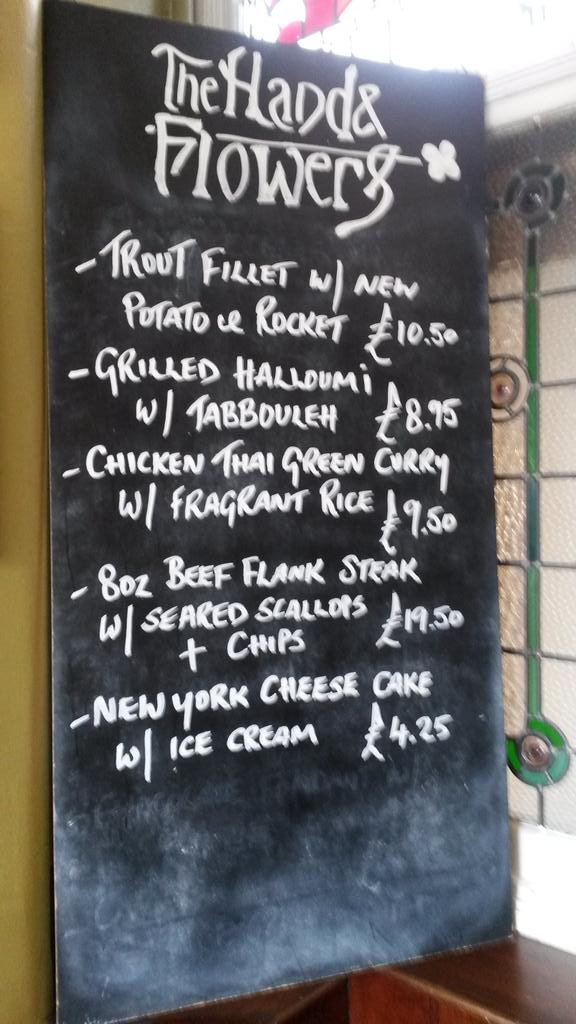 The Hand &
Flowers
- TROUT FILLET W/ NEW
POTATO & ROCKET £10.50
- GRILLED HALLOUMI
W/ TABBOULEH £8.95
- CHICKEN THAI GREEN CURRY
W/ FRAGRANT RICE £9.50
- 8OZ BEEF FLANK STEAK
W/ SEARED SCALLOPS £19.50
+ CHIPS
- NEW YORK CHEESE CAKE
W/ ICE CREAM £4.25